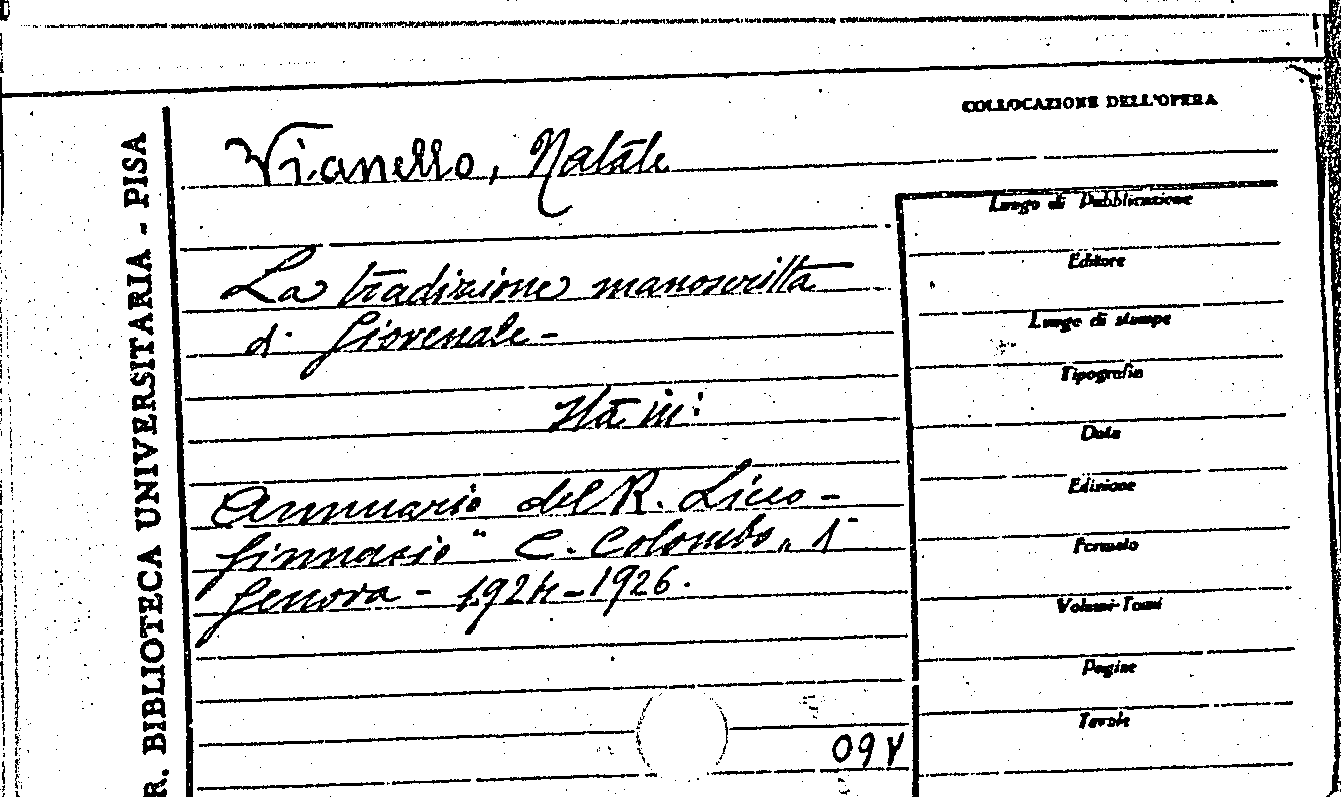 COLLOCAZIONE DELL'OPERA
Vianello, Natale
La tradizione manoscritta
di Giovenale -
Sta in:
Annuario del R. Liceo -
Ginnasio "C. Colombo„
Genova - 1924-1926.
097
R. BIBLIOTECA UNIVERSITARIA - PISA
Luogo di Pubblicazione
Editore
Luogo di stampa
Tipografia
Data
Edizione
Formato
Volumi-Tomi
Pagine
Tavole